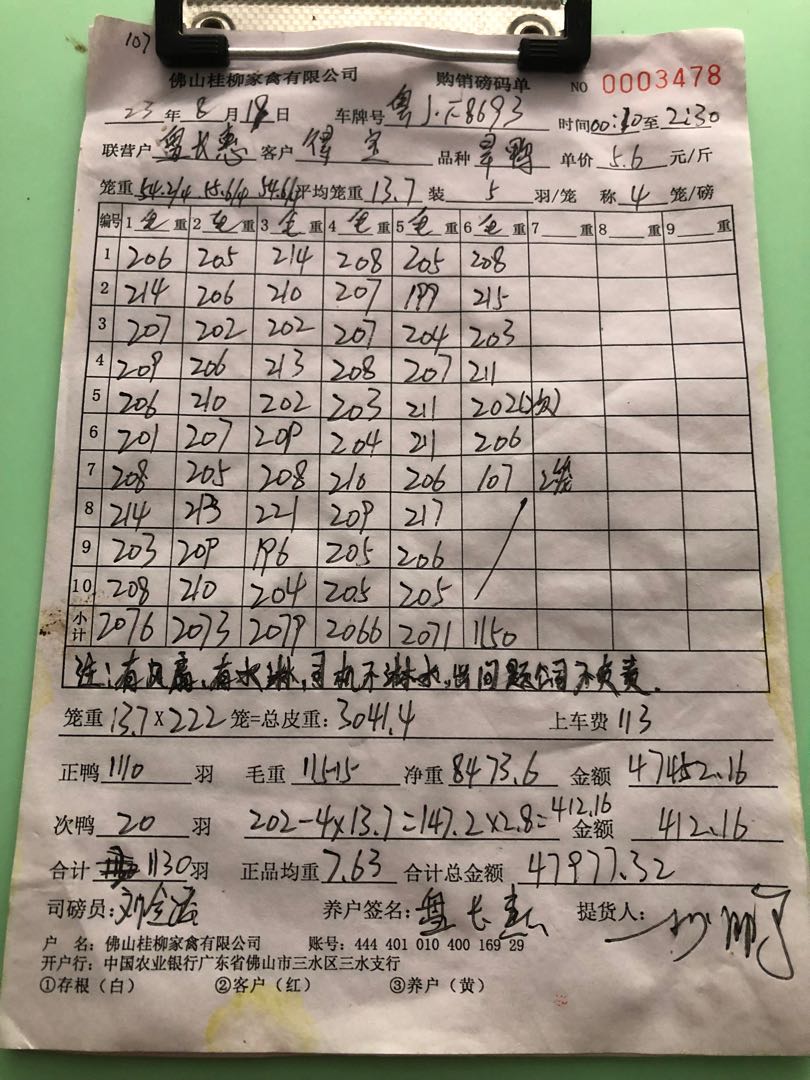 107
佛山桂柳家禽有限公司 购销磅码单 NO 0003478
23年8月18日 车牌号 粤J.F8693 时间00:10至2:30
联营户 盘长惠 客户 品种 旱鸭 单价 5.6 元/斤
笼重 54.2/4 55.6/4 54.6/4 平均笼重 13.7 装 5 羽/笼 称 4 笼/磅
编号 1 毛 重 2 毛 重 3 毛 重 4 毛 重 5 毛 重 6 毛 重 7 重 8 重 9 重
1 206 205 214 208 205 208
2 214 206 210 207 199 215
3 207 202 202 207 204 203
4 209 206 213 208 207 211
5 206 210 202 203 211 202(次)
6 201 207 209 204 211 206
7 208 205 208 210 206 107 2笼
8 214 213 221 209 217
9 203 209 196 205 206
10 208 210 204 205 205
小计 2076 2073 2079 2066 2071 1150
注:有风扇,有水淋,司机不淋水,出问题公司不负责.
笼重 13.7×222 笼=总皮重: 3041.4 上车费 113
正鸭 1110 羽 毛重 11515 净重 8473.6 金额 47452.16
次鸭 20 羽 202-4×13.7=147.2×2.8=412.16 金额 412.16
合计 1130羽 正品均重 7.63 合计总金额 47977.32
司磅员: 养户签名: 盘长惠 提货人:
户 名: 佛山桂柳家禽有限公司 账号: 444 401 010 400 169 29
开户行: 中国农业银行广东省佛山市三水区三水支行
①存根(白) ②客户(红) ③养户(黄)